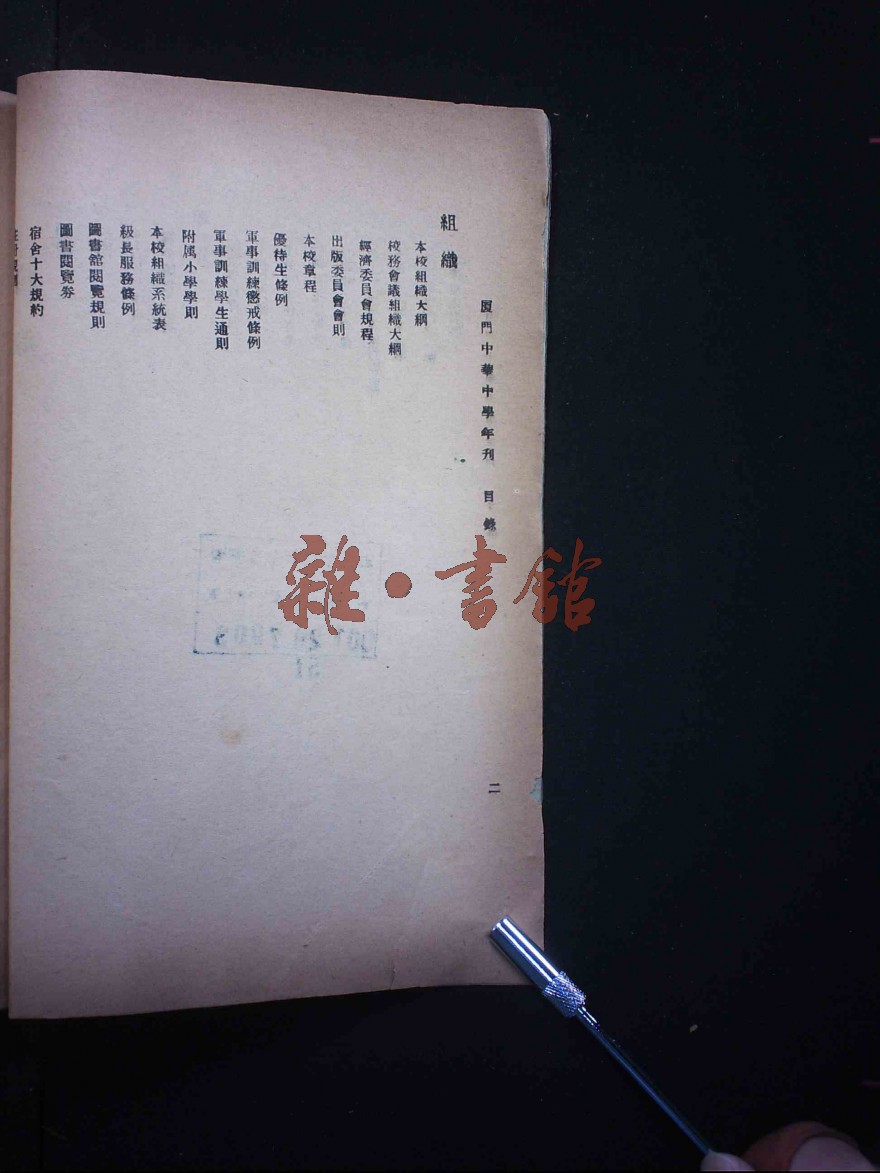 厦門中華中學年刊 目錄
二
組織
本校組織大綱
校務會議組織大綱
經濟委員會規程
出版委員會會則
本校章程
優待生條例
軍事訓練懲戒條例
軍事訓練學生通則
附属小學學則
本校組織系統表
級長服務條例
圖書舘閱覽規則
圖書閱覽劵
宿舍十大規約
雜·書館